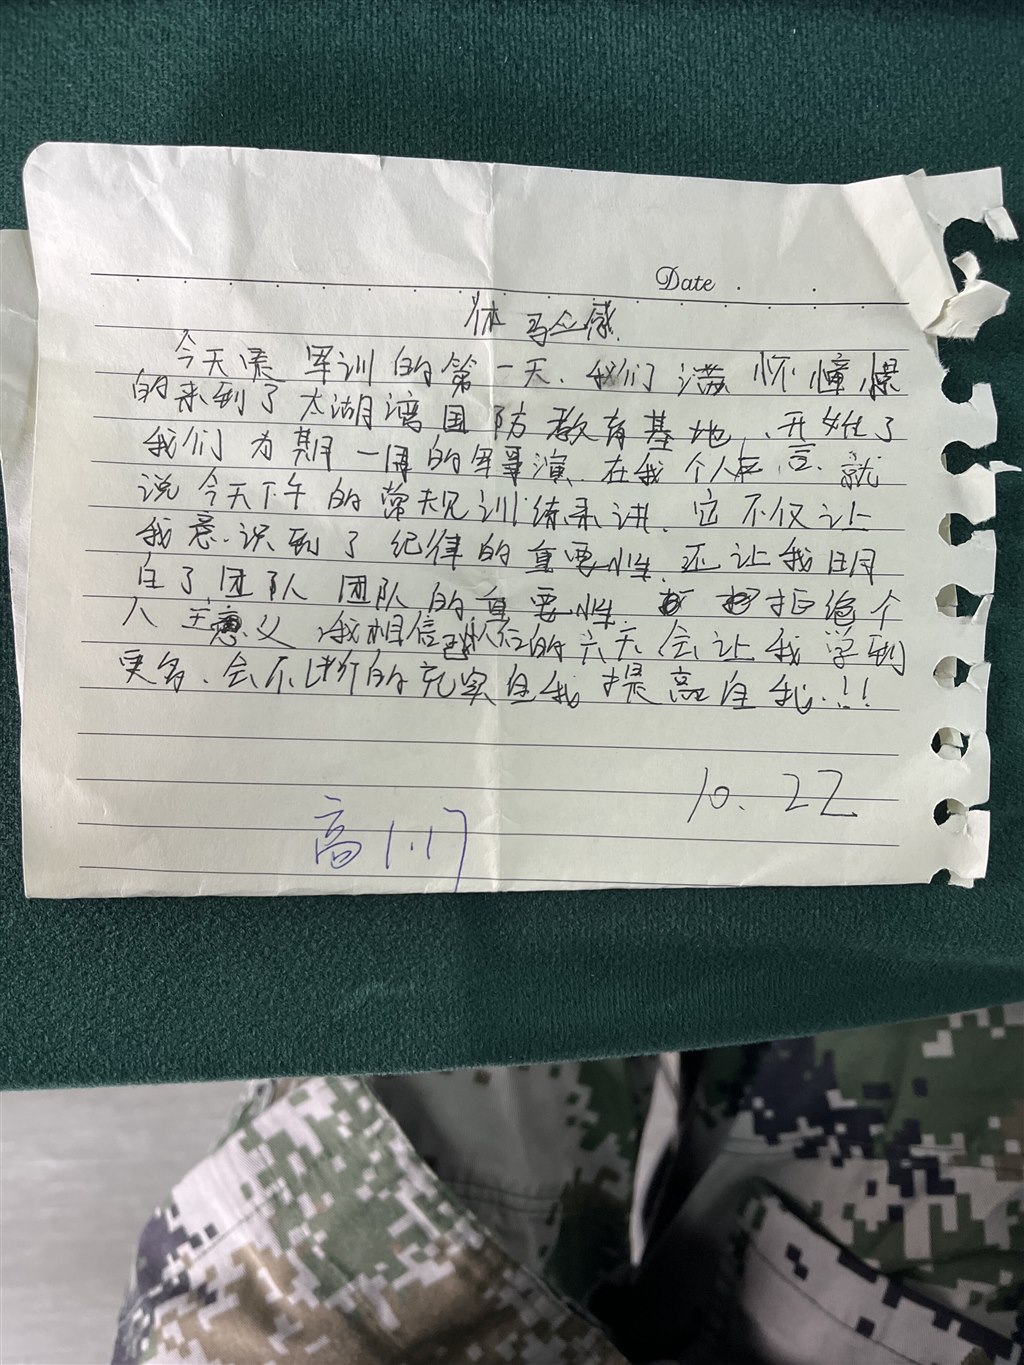 Date
感
今天是军训的第一天、我们满怀憧憬
的来到了太湖湾国防教育基地,、开始了
我们为期一周的军事演、在我个人而言、就
说今天下午的常规训练来讲、它不仅让
我意识到了纪律的重要性、还让我明
白了团队 团队的重要性、拒绝个
人主义 我相信的六天会让我学到
更多、会不断的充实自我 提高自我、!!
10.22
高1.17